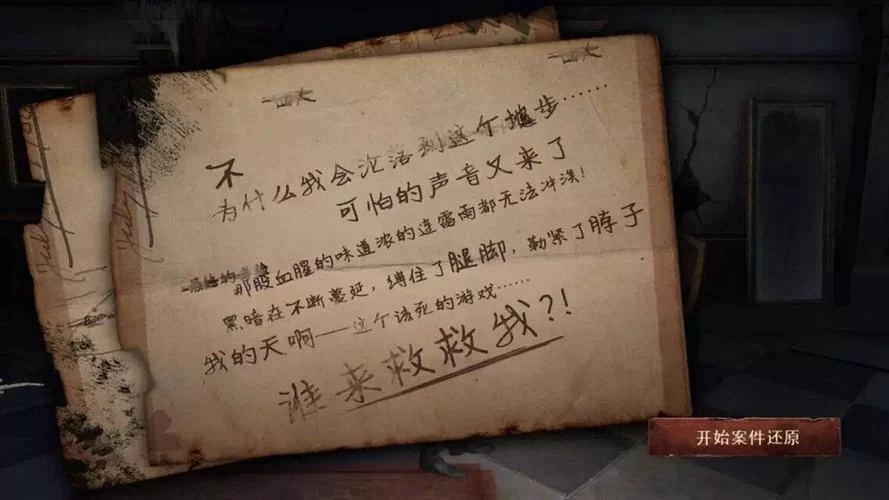 不
为什么我会沦落到这个地步……
可怕的声音又来了
那股血腥的味道浓的连雷雨都无法冲淡！
黑暗在不断蔓延，缚住了腿脚，勒紧了脖子
我的天啊——这个该死的游戏……
谁来救救我？！
开始案件还原